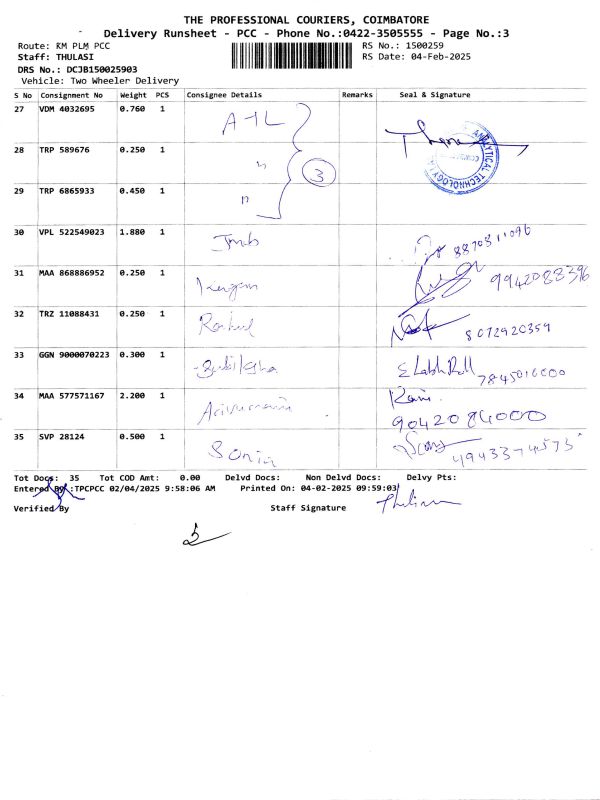 THE PROFESSIONAL COURIERS, COIMBATORE
Delivery Runsheet - PCC - Phone No.:0422-3505555 - Page No.:3
Route: KM PLM PCC RS No.: 1500259
Staff: THULASI RS Date: 04-Feb-2025
DRS No.: DCJB150025903
Vehicle: Two Wheeler Delivery
S No Consignment No Weight PCS Consignee Details Remarks Seal & Signature
27 VDM 4032695 0.760 1
ANALYTICAL TECHNOLOGY
28 TRP 589676 0.250 1 " 3
29 TRP 6865933 0.450 1 "
30 VPL 522549023 1.880 1
31 MAA 868886952 0.250 1 9942088396
32 TRZ 11088431 0.250 1 Rahul 8072920359
33 GGN 9000070223 0.300 1 7845016000
34 MAA 577571167 2.200 1 9042084000
35 SVP 28124 0.500 1 Sonia
Tot Docs: 35 Tot COD Amt: 0.00 Delvd Docs: Non Delvd Docs: Delvy Pts:
Entered By :TPCPCC 02/04/2025 9:58:06 AM Printed On: 04-02-2025 09:59:03
Verified By Staff Signature